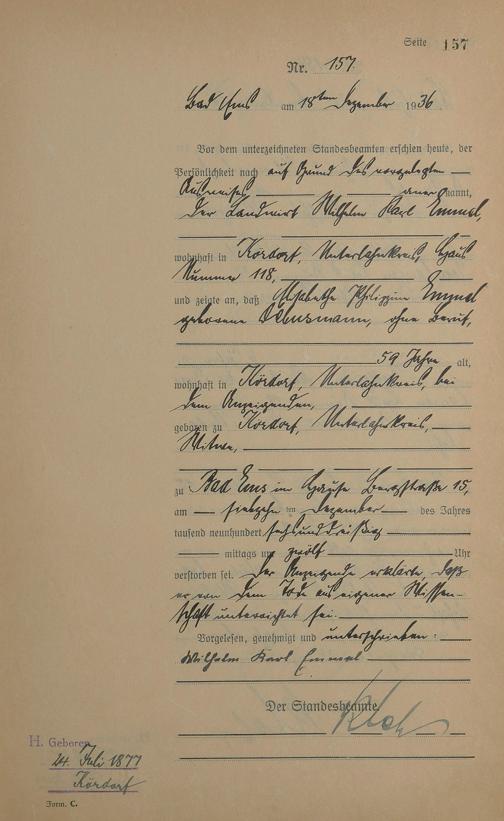 Seite 157
Nr. 157
Bad Ems am 18ten Dezember 1936
Vor dem unterzeichneten Standesbeamten erschien heute, der
Persönlichkeit nach auf Grund des vorgelegten
Ausweises anerkannt,
der Landwirt Wilhelm Karl Emmel,
wohnhaft in Kördorf, Unterlahnkreis, Haus
Nummer 118,
und zeigte an, daß Elisabethe Philippine Emmel
geborene, ohne Beruf,
59 Jahre alt,
wohnhaft in Kördorf, Unterlahnkreis, bei
dem Anzeigenden,
geboren zu Kördorf, Unterlahnkreis,
Witwe,
zu Bad Ems im Hause Bergstraße 15,
am siebzehnten Dezember des Jahres
tausend neunhundert sechsunddreißig
mittags um zwölf Uhr
verstorben sei. Der Anzeigende erklärte, daß
er von dem Tode aus eigener Wissen-
schaft unterrichtet sei.
Vorgelesen, genehmigt und unterschrieben:
Wilhelm Karl Emmel
Der Standesbeamte
H. Geboren
24. Juli 1877
Kördorf
Form. C.